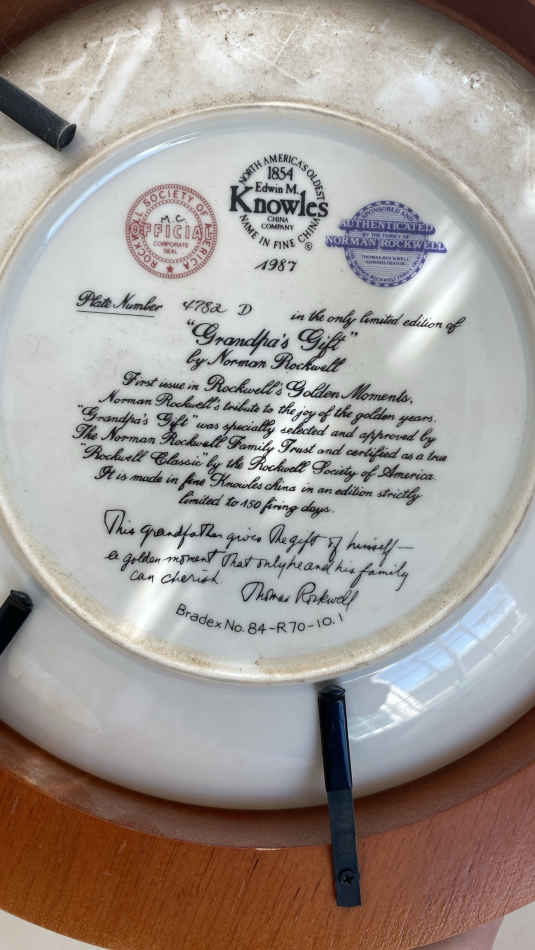 ROCKWELL SOCIETY OF AMERICA
M.C.
OFFICIAL
CORPORATE
SEAL
NORTH AMERICA'S OLDEST
1854
Edwin M.
Knowles
CHINA
COMPANY
NAME IN FINE CHINA
®
1987
SPONSORED AND
AUTHENTICATED
BY THE FAMILY OF
NORMAN ROCKWELL
THOMAS ROCKWELL
ADMINISTRATOR
Plate Number 4782 D in the only limited edition of
"Grandpa's Gift"
by Norman Rockwell
First issue in Rockwell's Golden Moments,
Norman Rockwell's tribute to the joy of the golden years.
"Grandpa's Gift" was specially selected and approved by
The Norman Rockwell Family Trust and certified as a true
Rockwell Classic" by the Rockwell Society of America.
It is made in fine Knowles china in an edition strictly
limited to 150 firing days.
This grandfather gives the gift of himself—
a golden moment that only he and his family
can cherish. Thomas Rockwell
Bradex No. 84-R70-10.1